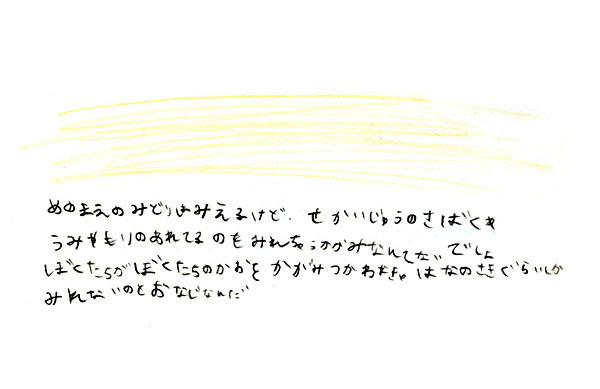 めのまえのみどりはみえるけど、せかいじゅうのさばくや
うみやもりのあれてるのもみれちゃうかがみなんてないでしょ
ぼくたちがぼくたちのかおをかがみつかわなきゃはなのさきぐらいしか
みれないのとおなじなんだ